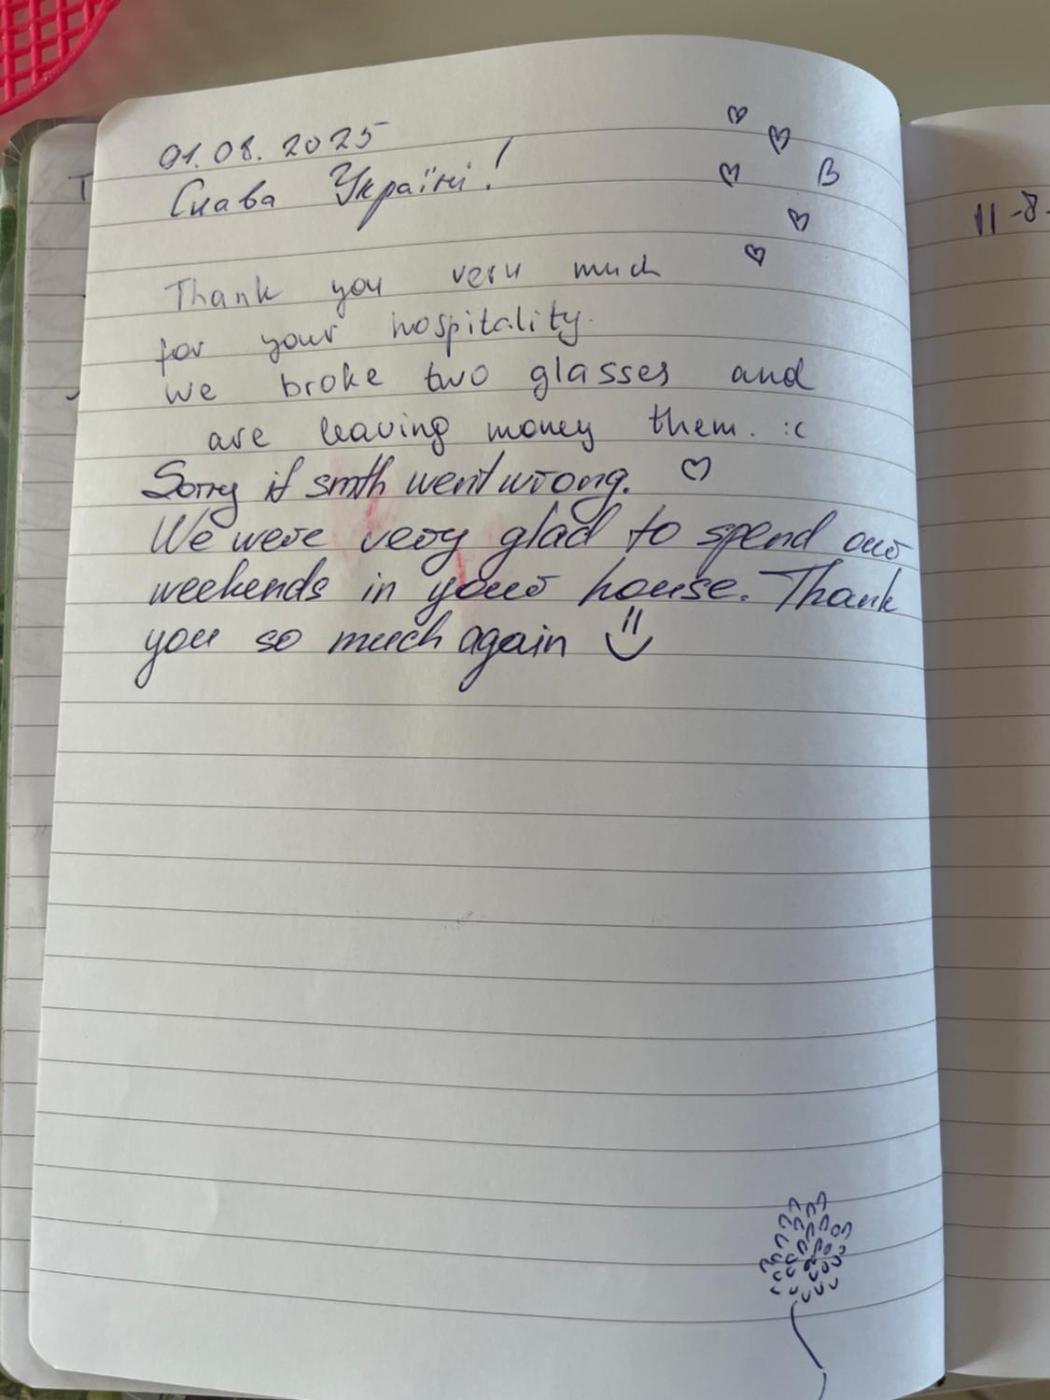 01.08.2025
Слава Україні!
B
Thank you very much
for your hospitality.
we broke two glasses and
are leaving money them. :c
Sorry if smth went wrong. ♡
We were very glad to spend our
weekends in your house. Thank
you so much again
11-8-